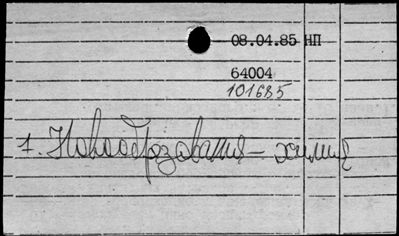 08.04.85 НП
64004
101685
1. Новообразования – химия